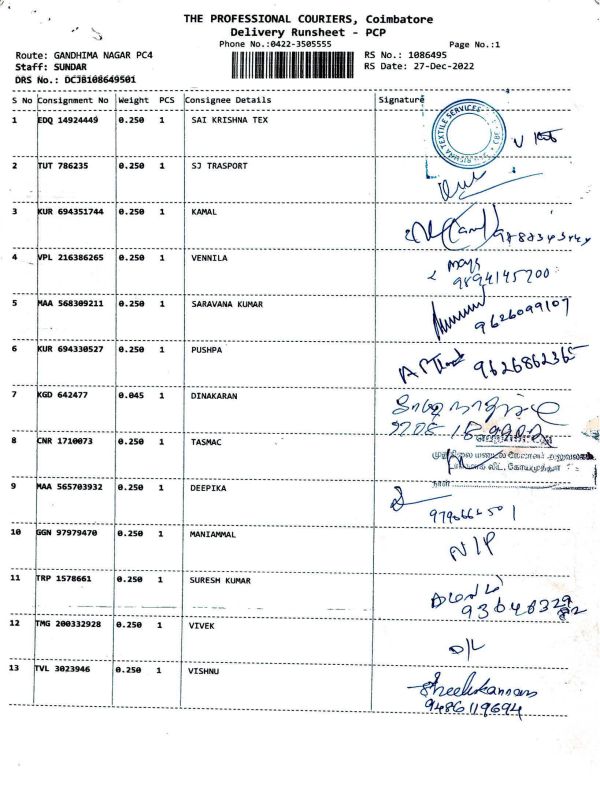 THE PROFESSIONAL COURIERS, Coimbatore
Delivery Runsheet - PCP
Phone No.:0422-3505555 Page No.:1
Route: GANDHIMA NAGAR PC4 RS No.: 1086495
Staff: SUNDAR RS Date: 27-Dec-2022
DRS No.: DCJB108649501
S No Consignment No Weight PCS Consignee Details Signature
1 EDQ 14924449 0.250 1 SAI KRISHNA TEX
TEXTILE SERVICES CBE
2 TUT 786235 0.250 1 SJ TRASPORT
3 KUR 694351744 0.250 1 KAMAL
4 VPL 216386265 0.250 1 VENNILA
9894145700
5 MAA 568309211 0.250 1 SARAVANA KUMAR
9626099107
6 KUR 694330527 0.250 1 PUSHPA
9626862365
7 KGD 642477 0.045 1 DINAKARAN
8 CNR 1710073 0.250 1 TASMAC
முதுநிலை மண்டல மேலாளர் அலுவலகம்
லிட், கோயமுத்தூர்
நாள்
9 MAA 565703932 0.250 1 DEEPIKA
10 GGN 97979470 0.250 1 MANIAMMAL
N/P
11 TRP 1578661 0.250 1 SURESH KUMAR
12 TMG 200332928 0.250 1 VIVEK
D/L
13 TVL 3023946 0.250 1 VISHNU
Sheelakannan
9486119694